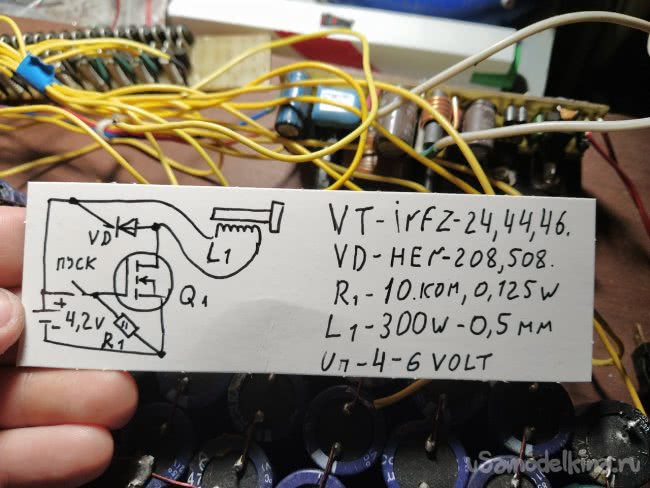 VD
L1
ПУСК
Q1
+
- 4,2V
R1
VT-irFZ-24,44,46.
VD-HEr-208,508.
R1-10.ком, 0,125W
L1-300W-0,5мм
Uп-4-6 VOLT
uSamodelkina.ru